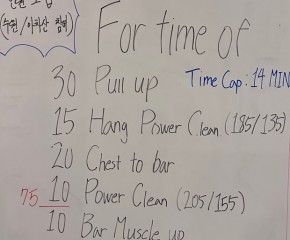 For time of
30 Pull up
Time Cap: 14 MIN
15 Hang Power Clean (185/135)
20 Chest to bar
75 10 Power Clean (205/155)
10 Bar Muscle up